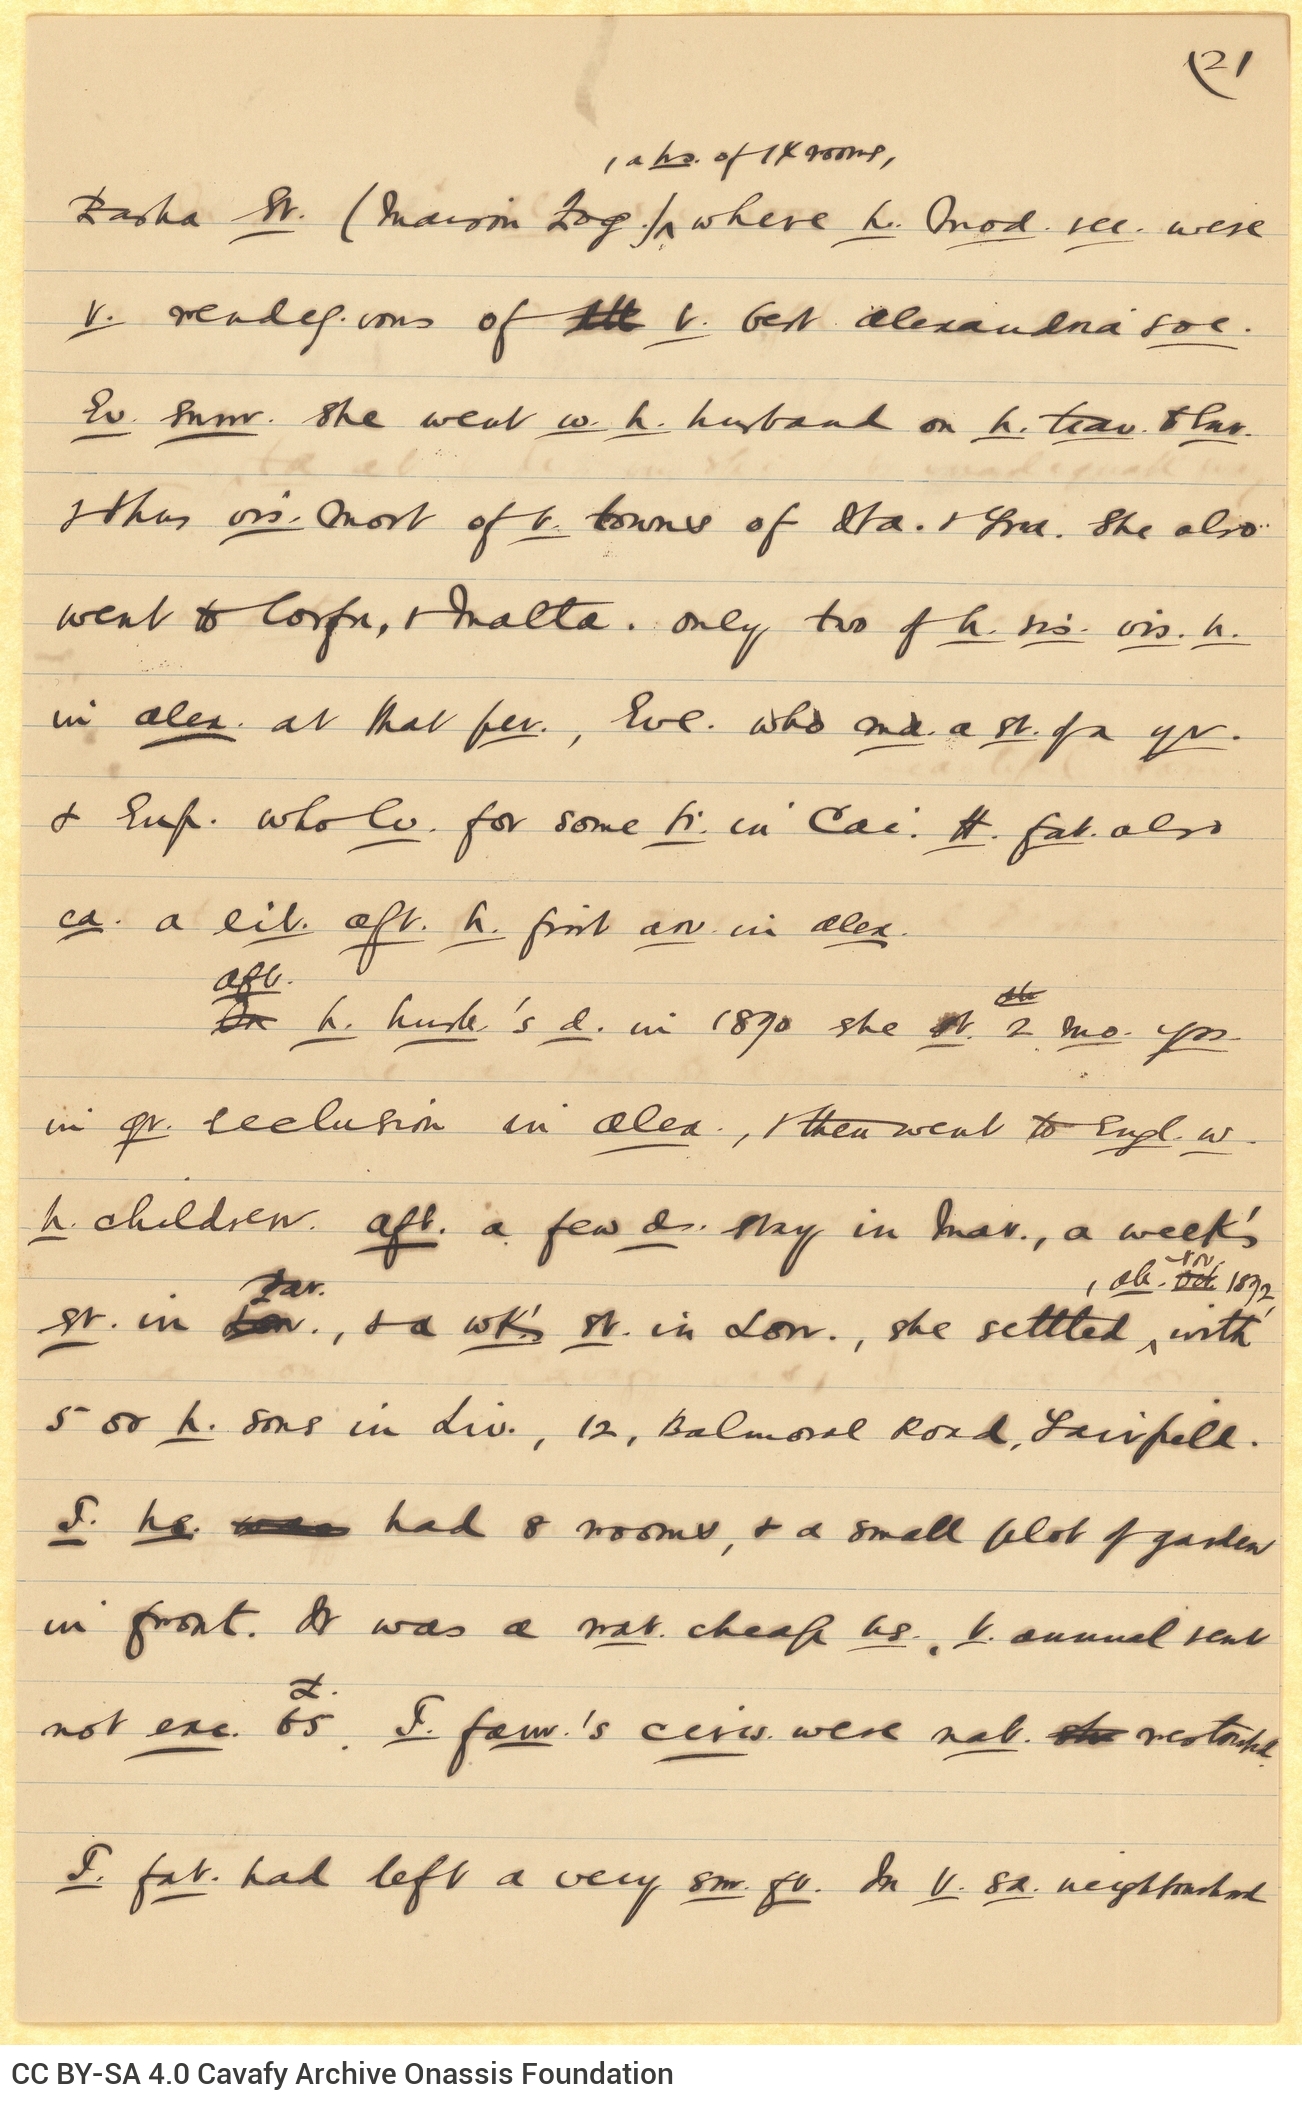 (21
, a hs. of 14 rooms,
Pasha St. (Maison Zog.) where h. Mod. rec. were
t. rendez-vous of t. best Alexandria soc.
Ev. summ. she went w. h. husband on h. trav.
& thus vis. most of t. towns of Ita. & Gra. She also
went to Corfu, & Malta. Only two of h. sis. vis. h.
in Alex. at that per., Eve. who md. a st. of a yr.
& Eup. who lv. for some ti. in Cai. H. fat. also
ca. a lit. aft. h. first arr. in Alex.
aft.
In h. husb.'s d. in 1870 she st. 2 mo. yrs
in gr. seclusion in Alex., & then went to Engl. w.
h. children. Aft. a few ds. stay in Mar., a week's
Par. , ab. Oct. 1872,
st. in Lon., & a wk's st. in Lon., she settled with
5 or h. sons in Liv., 12, Balmoral Road, Fairfield.
T. hs. was had 8 rooms, & a small plot of garden
in front. It was a rat. cheap hs., t. annual rent
£.
not exc. 65. T. fam.'s circs. were nat. she
T. fat. had left a very sm. ft. In t. sa. neighbourhood
CC BY-SA 4.0 Cavafy Archive Onassis Foundation